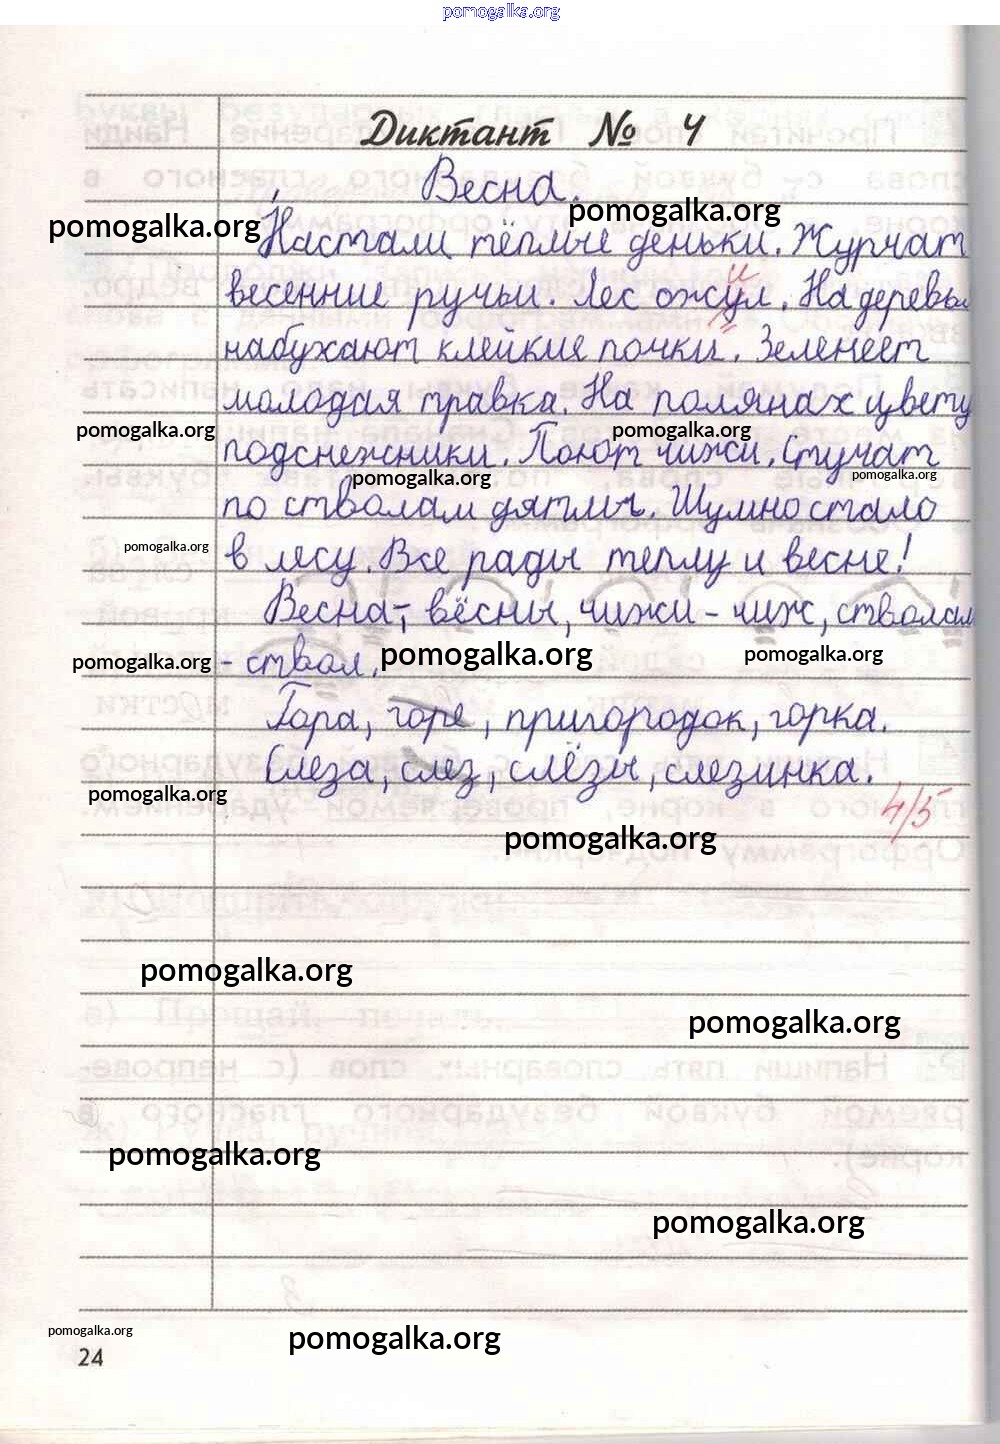 pomogalka.org
Диктант № 4
Весна.
pomogalka.org pomogalka.org
Настали тёплые деньки. Журчат
весенние ручьи. Лес ожул. На деревья
и
набухают клейкие почки. Зеленеет
молодая травка. На полянах цвету
pomogalka.org pomogalka.org
подснежники. Поют чижи. Стучат
pomogalka.org pomogalka.org
по стволам дятлы. Шумно стало
pomogalka.org
в лесу. Все рады теплу и весне!
Весна-, вёсны, чижи - чиж, стволам
pomogalka.org - ствол. pomogalka.org pomogalka.org
Гора, горе, пригородок, горка.
Слеза, слез, слёзы, слезинка.
pomogalka.org
4/5
pomogalka.org
pomogalka.org
pomogalka.org
pomogalka.org
pomogalka.org
pomogalka.org
pomogalka.org
24